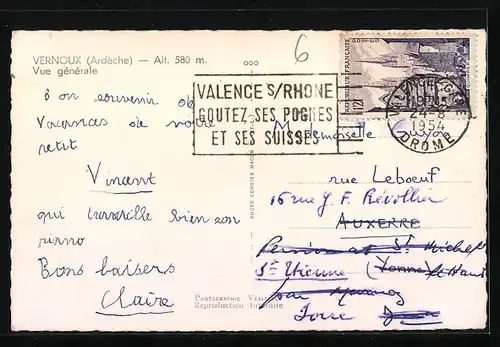 VERNOUX (Ardèche) — Alt. 580 m.
Vue générale
ooo
6
VALENCE S/RHONE
GOUTEZ SES POGNES
ET SES SUISSES
24-8
1954
DROME
Bon souvenir de
Vacances de votre
petit
Vincent
qui travaille bien son
piano
Bons baisers
Claire
Mademoiselle
rue Leboeuf
16 rue J. F. Révollier
AUXERRE
St Michel
St Etienne (Yonne)
par
Loire
PHOTOGRAPHIE VÉRITABLE
Reproduction Interdite